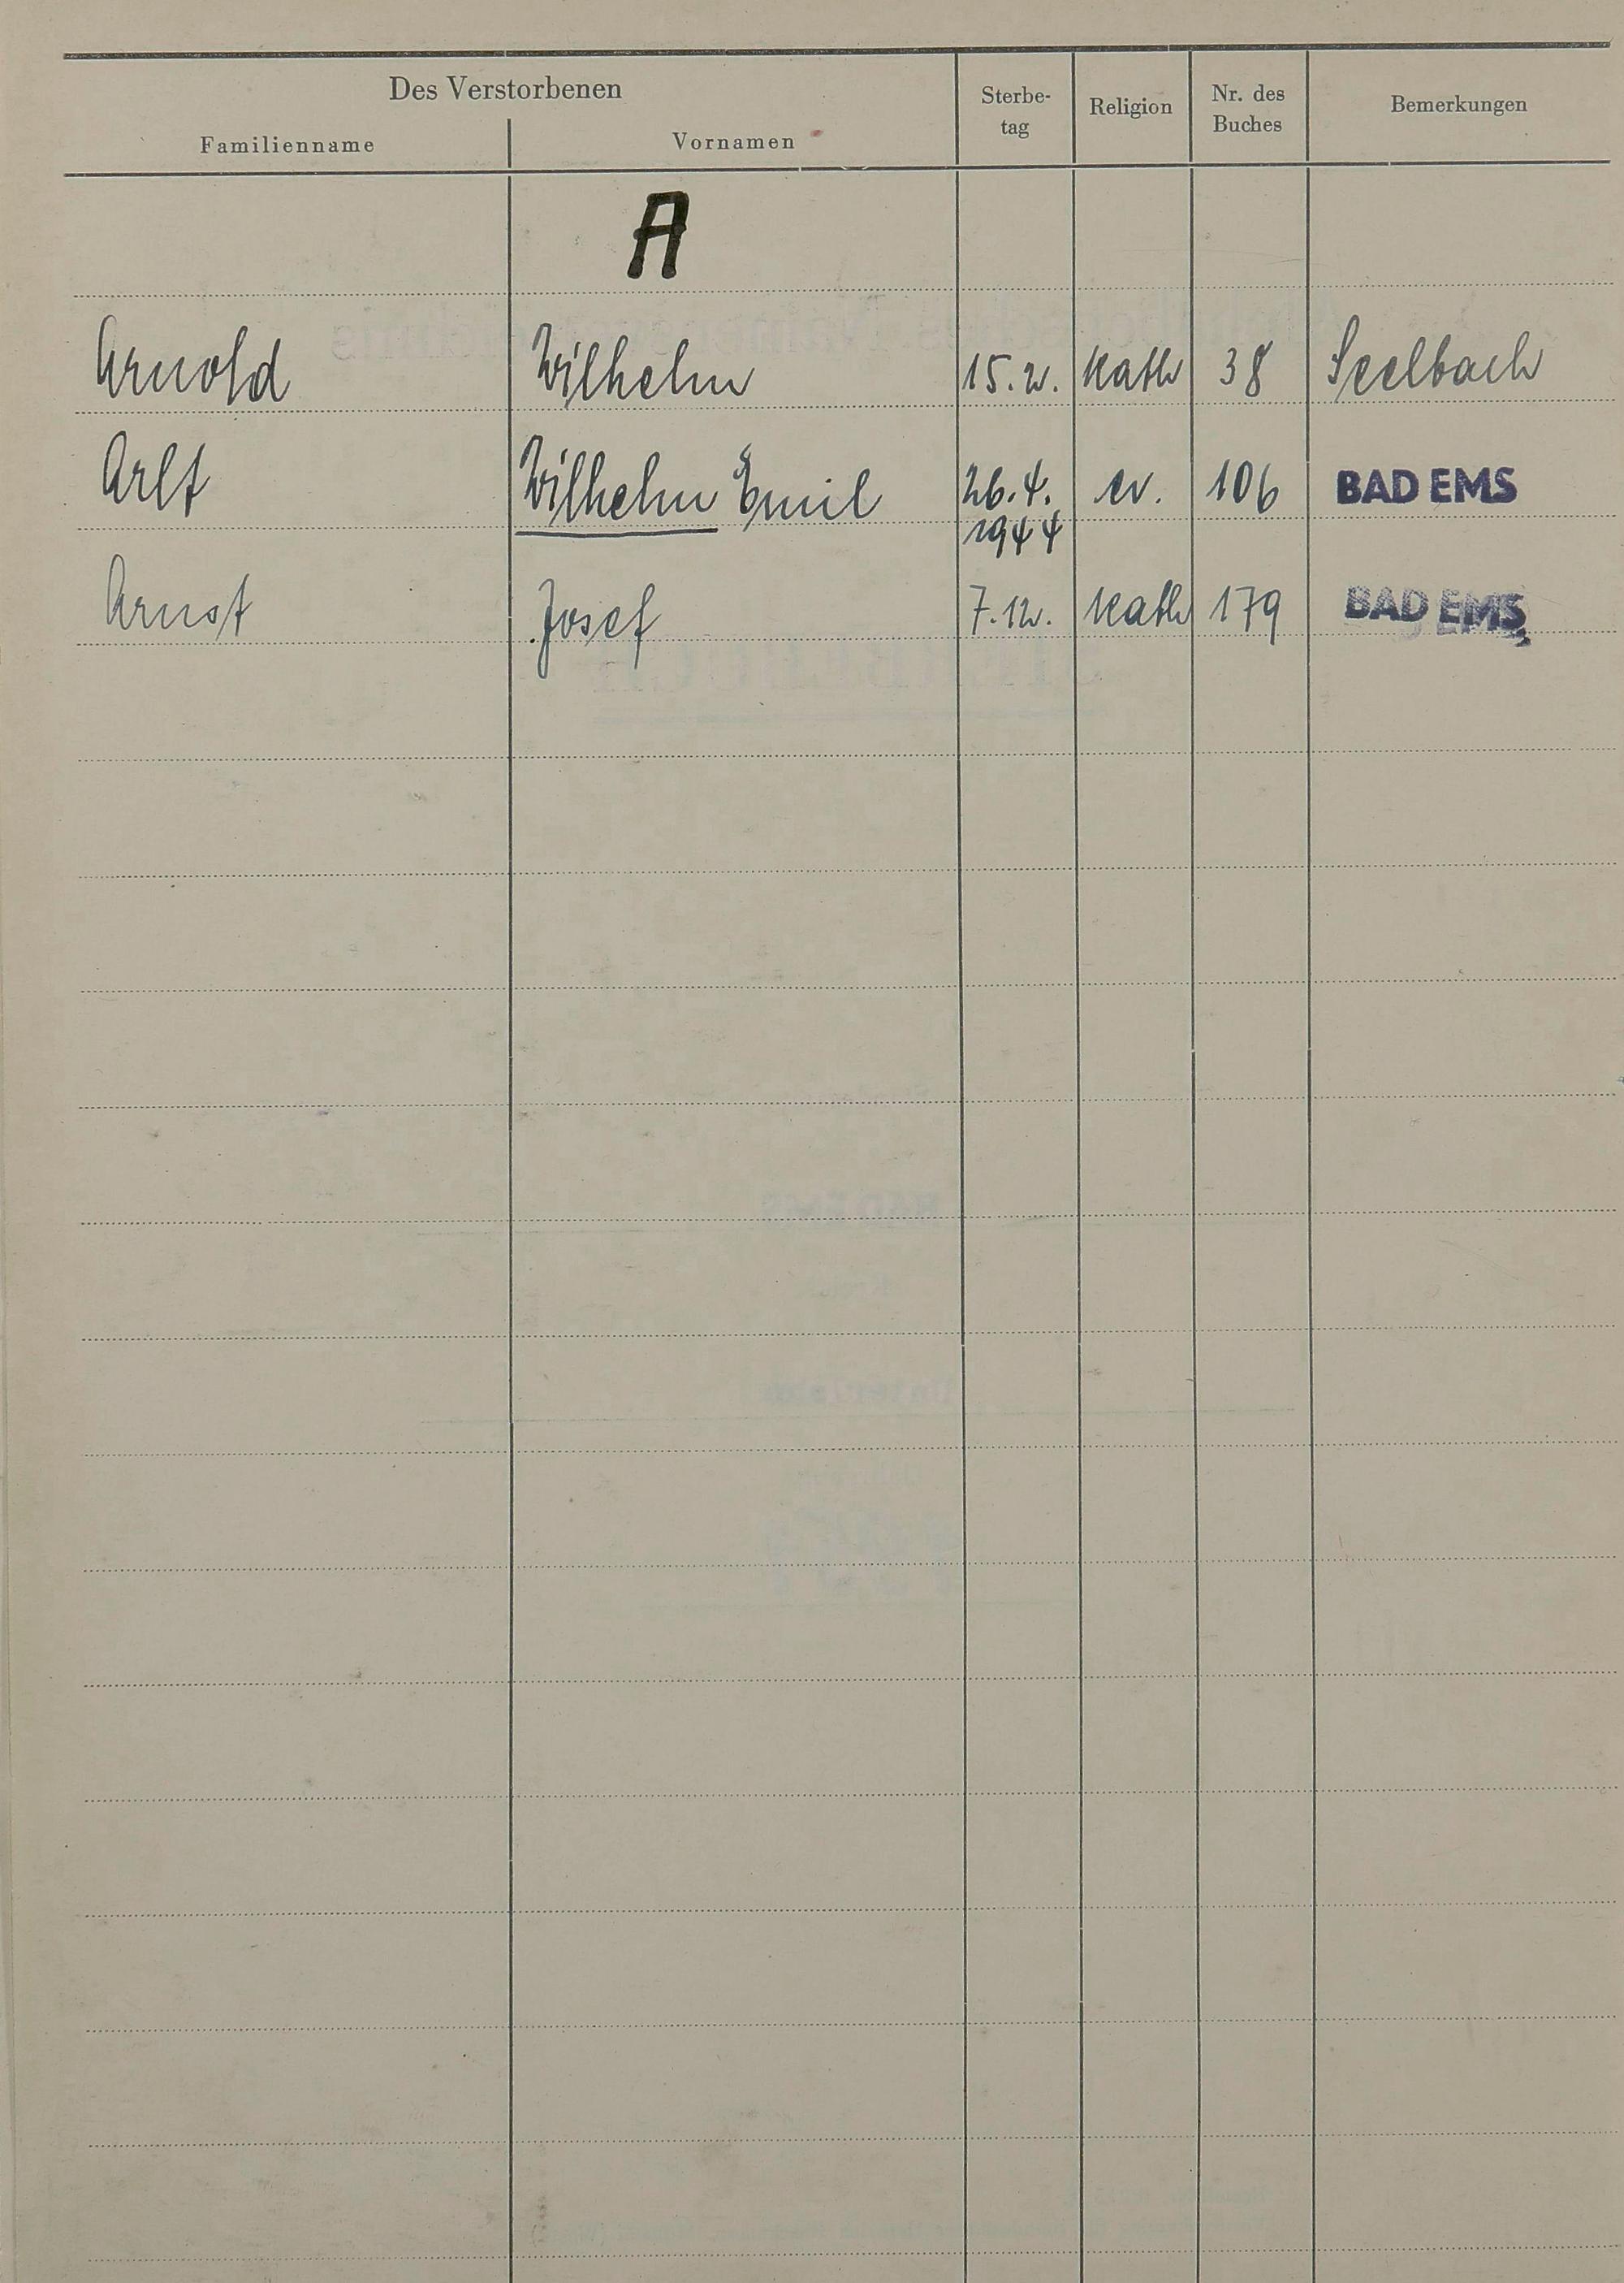 Des Verstorbenen
Familienname Vornamen Sterbe-tag Religion Nr. des Buches Bemerkungen
A
Arnold Wilhelm 15.2. Kath 38 Seelbach
Arlt Wilhelm Emil 26.4. ev. 106 BAD EMS
1944
Arnst Josef 7.12. Kath 179 BAD EMS